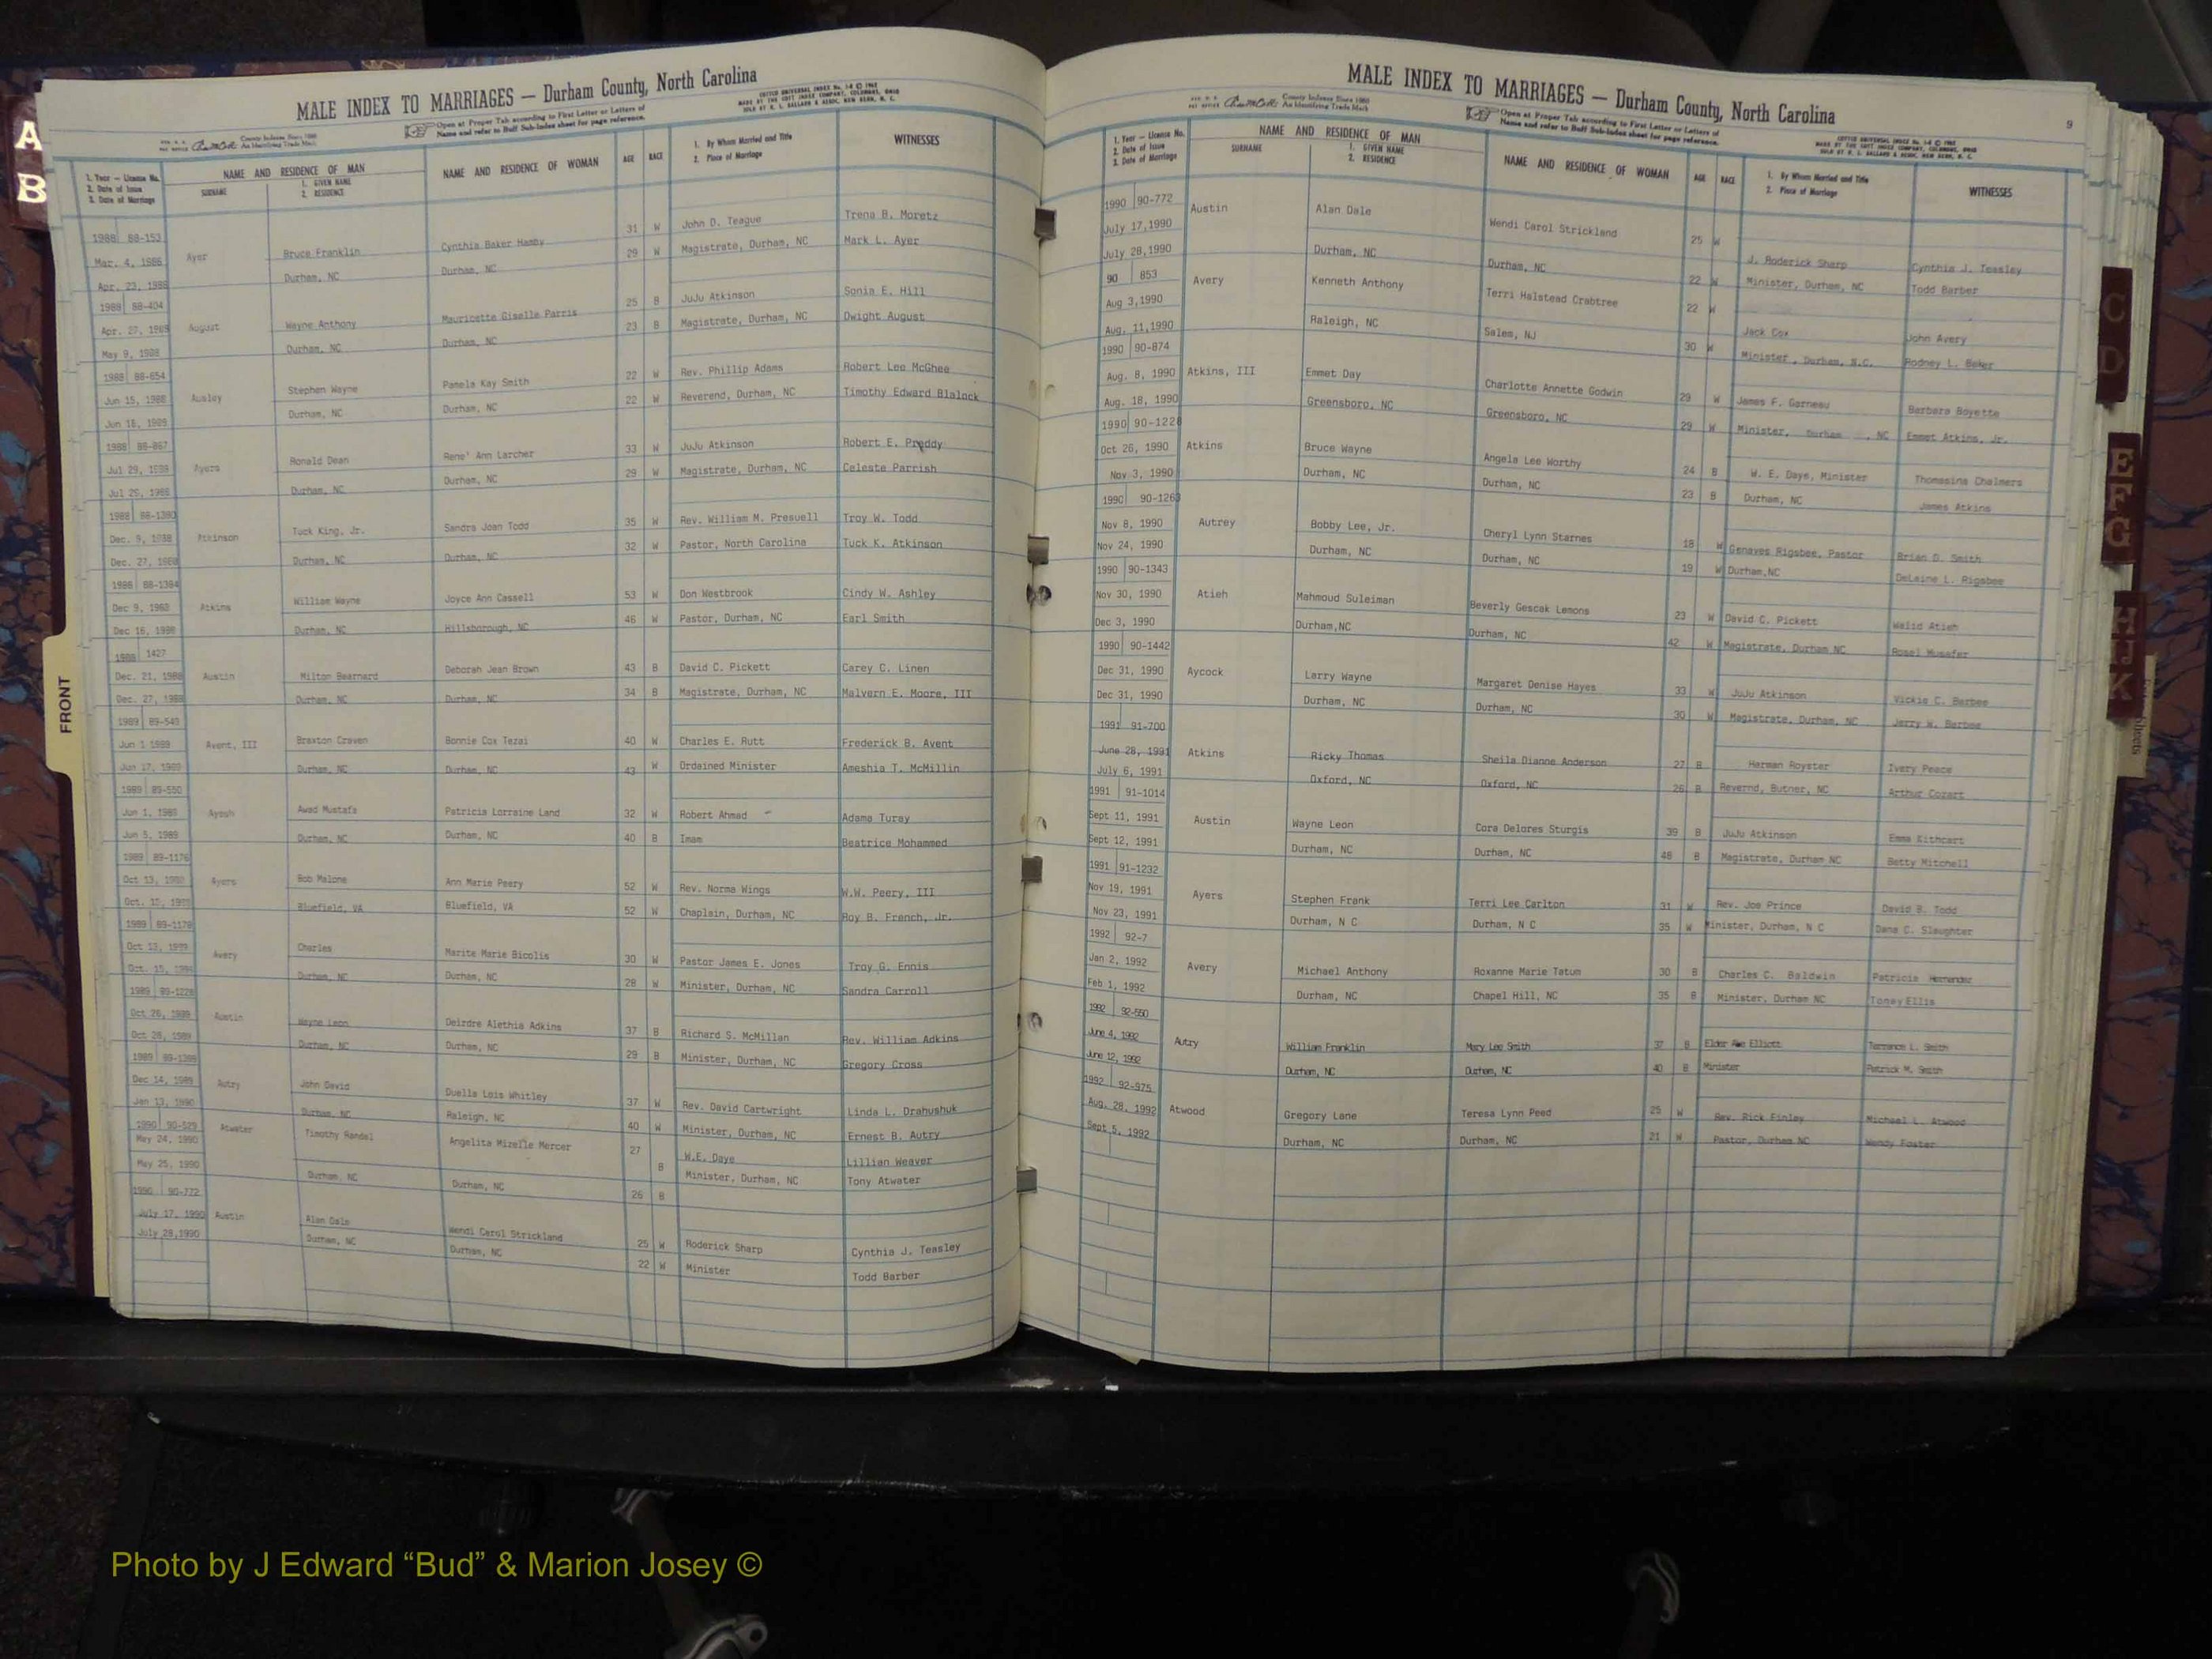 A
B
FRONT
MALE INDEX TO MARRIAGES — Durham County, North Carolina
Open at Proper Tab according to First Letter or Letters of
Name and refer to Buff Sub-Index sheet for page reference.
1. Year — License No.
2. Date of Issue
3. Date of Marriage
NAME AND RESIDENCE OF MAN
SURNAME
1. GIVEN NAME
2. RESIDENCE
NAME AND RESIDENCE OF WOMAN
AGE
RACE
1. By Whom Married and Title
2. Place of Marriage
WITNESSES
1988 88-153 Ayer Bruce Franklin Cynthia Baker Hamby 31 W John D. Teague Trena B. Moretz
Mar. 4, 1988 Durham, NC Durham, NC 29 W Magistrate, Durham, NC Mark L. Ayer
Apr. 23, 1988
1988 88-404 August Wayne Anthony Mauricette Giselle Parris 25 B JuJu Atkinson Sonia E. Hill
Apr. 27, 1988 Durham, NC Durham, NC 23 B Magistrate, Durham, NC Dwight August
May 9, 1988
1988 88-654 Stephen Wayne Pamela Kay Smith 22 W Rev. Phillip Adams Robert Lee McGhee
Jun 15, 1988 Ausley Durham, NC Durham, NC 22 W Reverend, Durham, NC Timothy Edward Blalock
Jun 18, 1988
1988 88-867 Ronald Dean Rene' Ann Larcher 33 W JuJu Atkinson Robert E. Preddy
Jul 29, 1988 Ayers Durham, NC Durham, NC 29 W Magistrate, Durham, NC Celeste Parrish
Jul 29, 1988
1988 88-1380 Tuck King, Jr. Sandra Joan Todd 35 W Rev. William M. Presuell Troy W. Todd
Dec. 9, 1988 Atkinson Durham, NC Durham, NC 32 W Pastor, North Carolina Tuck K. Atkinson
Dec. 27, 1988
1988 88-1384 William Wayne Joyce Ann Cassell 53 W Don Westbrook Cindy W. Ashley
Dec 9, 1988 Atkins Durham, NC Hillsborough, NC 46 W Pastor, Durham, NC Earl Smith
Dec 16, 1988
1988 1427 Milton Bearnard Deborah Jean Brown 43 B David C. Pickett Carey C. Linen
Dec. 21, 1988 Austin Durham, NC Durham, NC 34 B Magistrate, Durham, NC Malvern E. Moore, III
Dec. 27, 1988
1989 89-549 Braxton Craven Bonnie Cox Tezai 40 W Charles E. Rutt Frederick B. Avent
Jun 1 1989 Avent, III Durham, NC Durham, NC 43 W Ordained Minister Ameshia T. McMillin
Jun 17, 1989
1989 89-550 Awad Mustafa Patricia Lorraine Land 32 W Robert Ahmed Adama Turay
Jun 1, 1989 Ayoub Durham, NC Durham, NC 40 B Imam Beatrice Mohammed
Jun 5, 1989
1989 89-1176 Rob Malone Ann Marie Peery 52 W Rev. Norma Wings W.W. Peery, III
Oct 13, 1989 Ayers Bluefield, VA Bluefield, VA 52 W Chaplain, Durham, NC Roy B. French, Jr.
1989 89-1178 Charles Marite Marie Bicolis 30 W Pastor James E. Jones Troy G. Ennis
Oct 13, 1989 Avery Durham, NC Durham, NC 28 W Minister, Durham, NC Sandra Carroll
Oct. 15, 1989
1989 89-1228 Wayne Leon Deirdre Alethia Adkins 37 B Richard S. McMillan Rev. William Adkins
Oct 26, 1989 Austin Durham, NC Durham, NC 29 B Minister, Durham, NC Gregory Cross
Oct 28, 1989
1989 89-1399 John David Duella Lois Whitley 37 W Rev. David Cartwright Linda L. Drahushuk
Dec 14, 1989 Autry Durham, NC Raleigh, NC 40 W Minister, Durham, NC Ernest B. Autry
Jan 13, 1990
1990 90-529 Atwater Timothy Randal Angelita Mizelle Mercer 27 B W.E. Daye Lillian Weaver
May 24, 1990 Durham, NC Durham, NC 26 B Minister, Durham, NC Tony Atwater
May 25, 1990
1990 90-772 Alan Dale Wendi Carol Strickland 25 W Roderick Sharp Cynthia J. Teasley
July 17, 1990 Austin Durham, NC Durham, NC 22 W Minister Todd Barber
July 28, 1990
MALE INDEX TO MARRIAGES — Durham County, North Carolina
9
Open at Proper Tab according to First Letter or Letters of
Name and refer to Buff Sub-Index sheet for page reference.
1. Year — License No.
2. Date of Issue
3. Date of Marriage
NAME AND RESIDENCE OF MAN
SURNAME
1. GIVEN NAME
2. RESIDENCE
NAME AND RESIDENCE OF WOMAN
AGE
RACE
1. By Whom Married and Title
2. Place of Marriage
WITNESSES
1990 90-772 Austin Alan Dale Wendi Carol Strickland 25 W J. Roderick Sharp Cynthia J. Teasley
July 17,1990 Durham, NC Durham, NC 22 W Minister, Durham, NC Todd Barber
July 28,1990
90 853 Avery Kenneth Anthony Terri Halstead Crabtree 22 W Jack Cox John Avery
Aug 3,1990 Raleigh, NC Salem, NJ 30 W Minister, Durham, N.C. Rodney L. Baker
Aug. 11,1990
1990 90-874 Atkins, III Emmet Day Charlotte Annette Godwin 29 W James F. Garneau Barbara Boyette
Aug. 8, 1990 Greensboro, NC Greensboro, NC 29 W Minister, Durham , NC Emmet Atkins, Jr.
Aug. 18, 1990
1990 90-1228 Atkins Bruce Wayne Angela Lee Worthy 24 B W. E. Daye, Minister Thomasina Chalmers
Oct 26, 1990 Durham, NC Durham, NC 23 B Durham, NC James Atkins
Nov 3, 1990
1990 90-1263 Autrey Bobby Lee, Jr. Cheryl Lynn Starnes 18 W Genaves Rigsbee, Pastor Brian D. Smith
Nov 8, 1990 Durham, NC Durham, NC 19 W Durham,NC DeLaine L. Rigsbee
Nov 24, 1990
1990 90-1343 Atieh Mahmoud Suleiman Beverly Gescak Lemons 23 W David C. Pickett Walid Atieh
Nov 30, 1990 Durham,NC Durham, NC 42 W Magistrate, Durham NC
Dec 3, 1990
1990 90-1442 Aycock Larry Wayne Margaret Denise Hayes 33 W JuJu Atkinson Vickie C. Barbee
Dec 31, 1990 Durham, NC Durham, NC 30 W Magistrate, Durham, NC Jerry W. Barbee
Dec 31, 1990
1991 91-700 Atkins Ricky Thomas Sheila Dianne Anderson 27 B Herman Royster Ivery Peace
June 28, 1991 Oxford, NC Oxford, NC 26 B Revernd, Butner, NC Arthur Cozart
July 6, 1991
1991 91-1014 Austin Wayne Leon Cora Delores Sturgis 39 B JuJu Atkinson Emma Kithcart
Sept 11, 1991 Durham, NC Durham, NC 48 B Magistrate, Durham NC Betty Mitchell
Sept 12, 1991
1991 91-1232 Ayers Stephen Frank Terri Lee Carlton 31 W Rev. Joe Prince David B. Todd
Nov 19, 1991 Durham, N C Durham, N C 35 W Minister, Durham, N C Dana C. Slaughter
Nov 23, 1991
1992 92-7 Avery Michael Anthony Roxanne Marie Tatum 30 B Charles C. Baldwin Patricia Hernandez
Jan 2, 1992 Durham, NC Chapel Hill, NC 35 B Minister, Durham NC Toney Ellis
Feb 1, 1992
1992 92-550 Autry William Franklin Mary Lee Smith 37 B Elder Abe Elliott Terrance L. Smith
June 4, 1992 Durham, NC Durham, NC 40 B Minister Patrick M. Smith
June 12, 1992
1992 92-975 Atwood Gregory Lane Teresa Lynn Peed 25 W Rev. Rick Finley Michael L. Atwood
Aug. 28, 1992 Durham, NC Durham, NC 21 W Pastor, Durham NC Wendy Foster
Sept 5, 1992
C
D
E
F
G
H
I
J
K
Sheets
Photo by J Edward “Bud” & Marion Josey ©